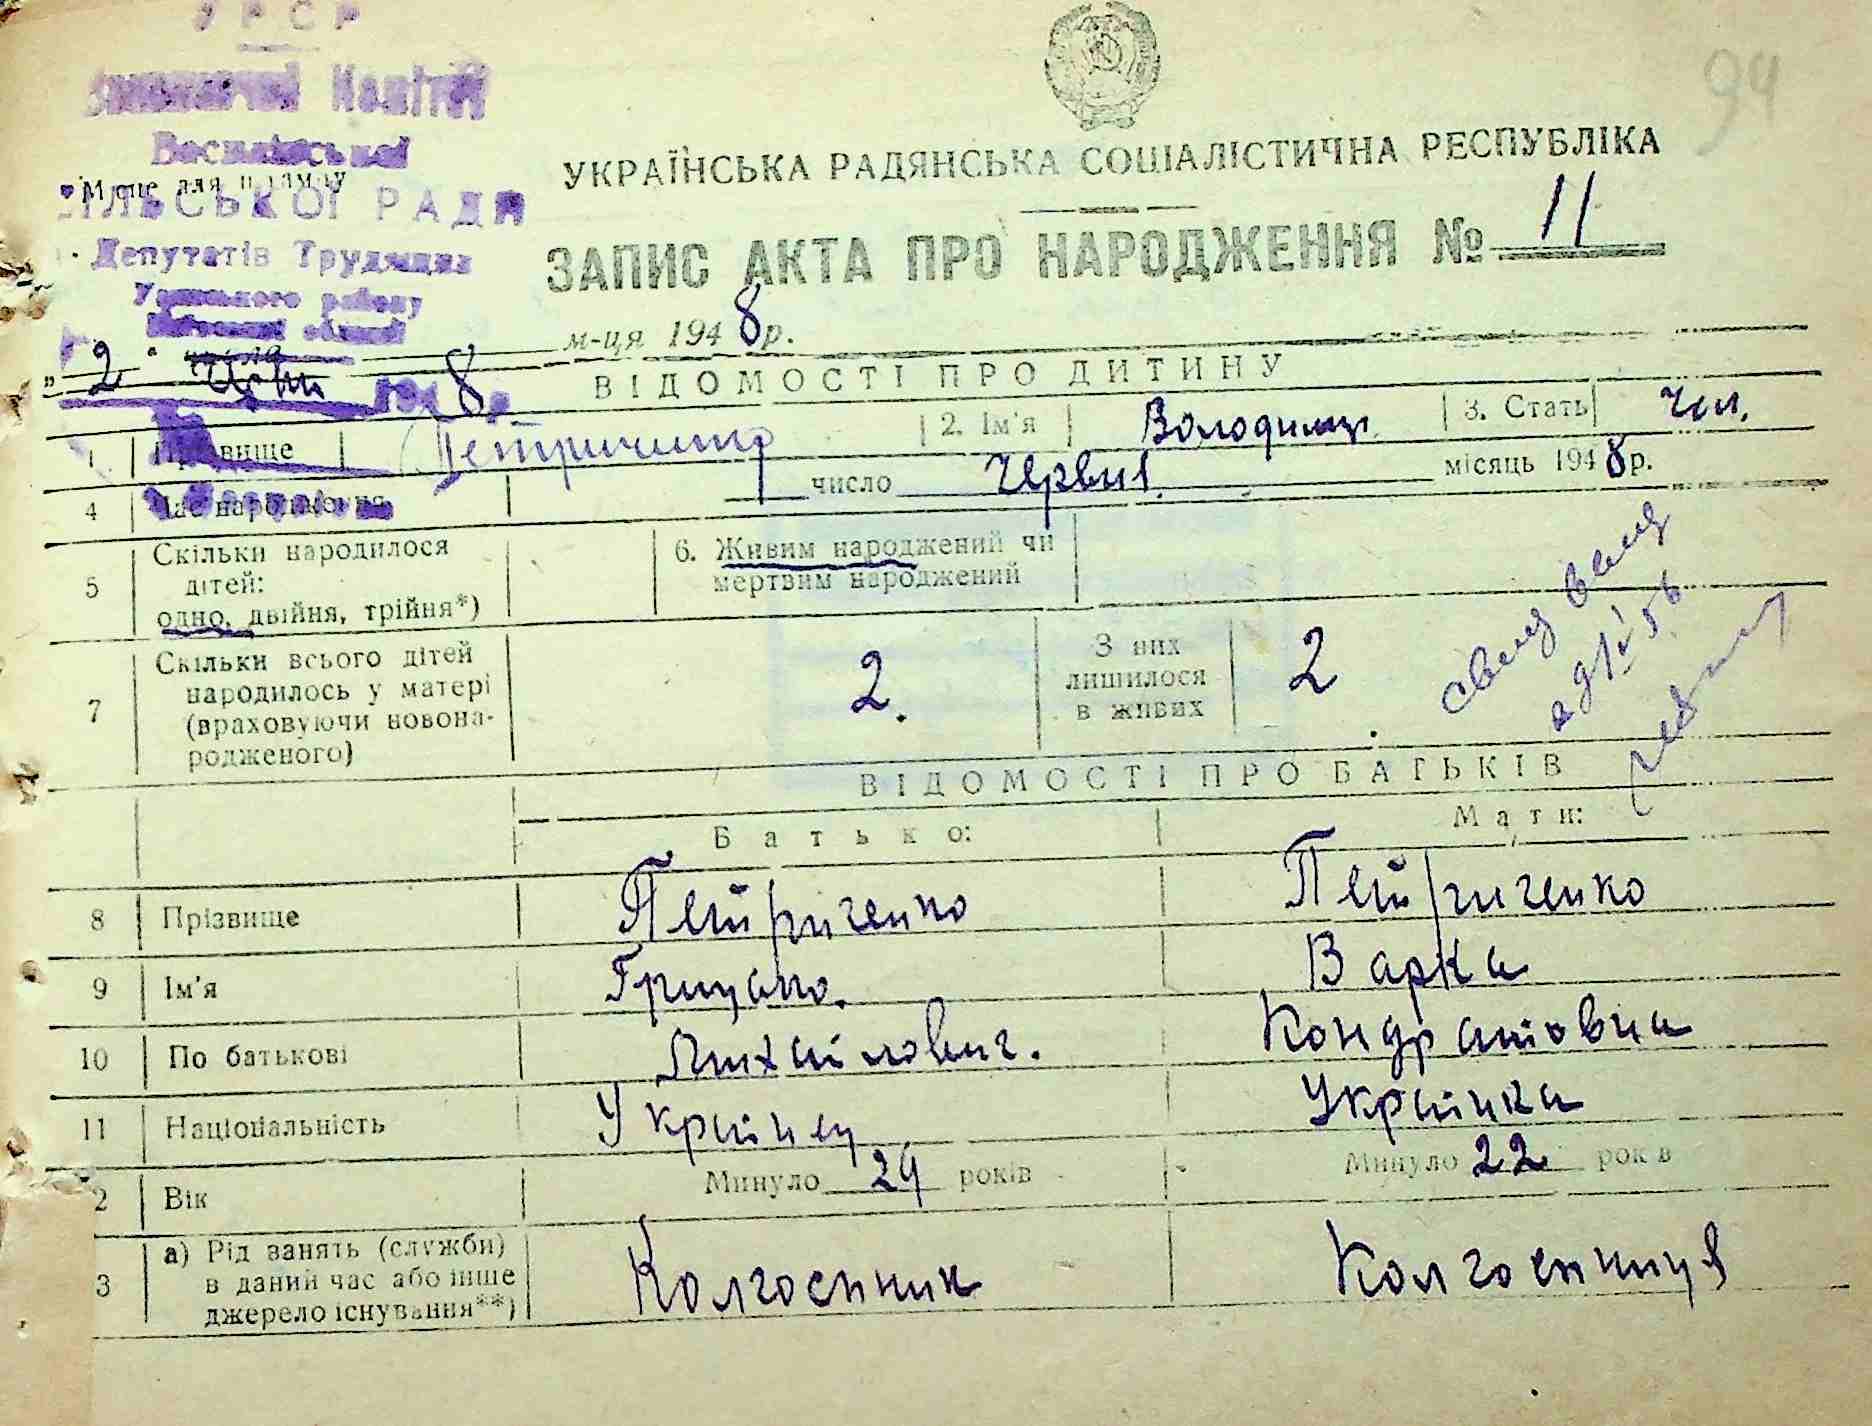 УРСР
94
Виконавчий Комітет
УКРАЇНСЬКА РАДЯНСЬКА СОЦІАЛІСТИЧНА РЕСПУБЛІКА
Місце для штампу
СІЛЬСЬКОЇ РАДИ
ЗАПИС АКТА ПРО НАРОДЖЕННЯ № 11
Депутатів Трудящих
району
області
„2" числа м-ця 1948 р.
1948 р.
ВІДОМОСТІ ПРО ДИТИНУ
1 Прізвище Петриченко 2. Ім'я Володимир 3. Стать чол.
4 Час народження 1 число Червня місяць 1948 р.
5 Скільки народилося дітей: одно, двійня, трійня*) 6. Живим народжений чи мертвим народжений
7 Скільки всього дітей народилось у матері (враховуючи новонародженого) 2. З них лишилося в живих 2.
ВІДОМОСТІ ПРО БАТЬКІВ
Батько: Мати:
8 Прізвище Петриченко Петриченко
9 Ім'я Грицько. Варка
10 По батькові Михайлович. Кондратовна
11 Національність Украйнец Украйнка
2 Вік Минуло 29 років Минуло 22 років
3 а) Рід занять (служби) в даний час або інше джерело існування**) Колгоспник Колгоспниця